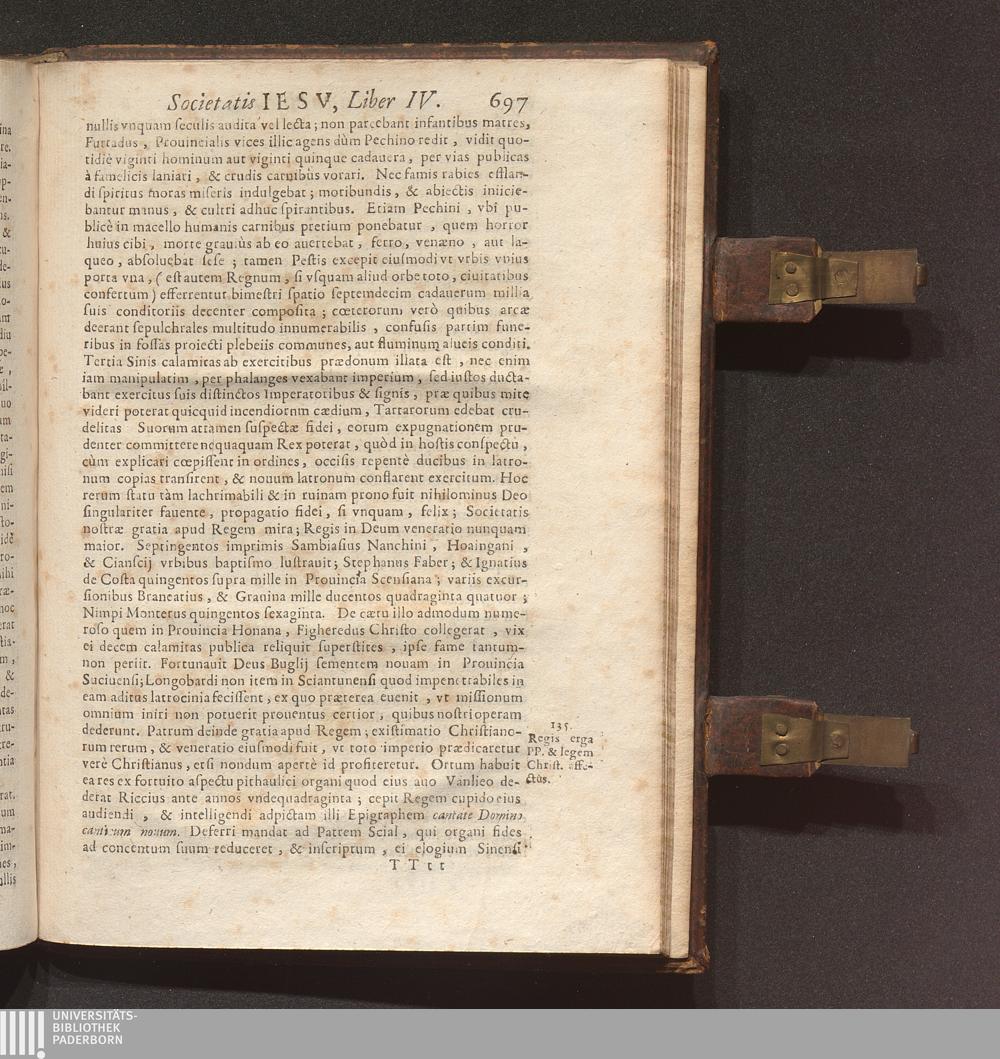 Societatis IESV, Liber IV. 697
nullis vnquam seculis audita vel lecta; non parcebant infantibus matres,
Furtadus, Prouincialis vices illic agens dùm Pechino redit, vidit quo-
tidiè viginti hominum aut viginti quinque cadauera, per vias publicas
à famelicis laniari, & crudis carnibus vorari. Nec famis rabies efflan-
di spiritus moras miseris indulgebat; moribundis, & abiectis iniicie-
bantur manus, & cultri adhuc spirantibus. Etiam Pechini, vbi pu-
blicè in macello humanis carnibus pretium ponebatur, quem horror
huius cibi, morte grauiùs ab eo auertebat, ferro, venæno, aut la-
queo, absoluebat sese; tamen Pestis excepit eiusmodi vt vrbis vnius
porta vna, (est autem Regnum, si vsquam aliud orbe toto, ciuitatibus
confertum) efferrentur bimestri spatio septemdecim cadauerum millia
suis conditoriis decenter composita; cœterorum verò quibus arcæ
deerant sepulchrales multitudo innumerabilis, confusis partim fune-
ribus in fossas proiecti plebeiis communes, aut fluminum alueis conditi.
Tertia Sinis calamitas ab exercitibus prædonum illata est, nec enim
iam manipulatim, per phalanges vexabant imperium, sed iustos ducta-
bant exercitus suis distinctos Imperatoribus & signis, præ quibus mite
videri poterat quicquid incendiorum cædium, Tartarorum edebat cru-
delitas Suorum attamen suspectæ fidei, eorum expugnationem pru-
denter committere nequaquam Rex poterat, quòd in hostis conspectu,
cùm explicari cœpissent in ordines, occisis repentè ducibus in latro-
num copias transirent, & nouum latronum conflarent exercitum. Hoc
rerum statu tàm lachrimabili & in ruinam prono fuit nihilominus Deo
singulariter fauente, propagatio fidei, si vnquam, felix; Societatis
nostræ gratia apud Regem mira; Regis in Deum veneratio nunquam
maior. Septingentos imprimis Sambiasius Nanchini, Hoaingani,
& Cianscij vrbibus baptismo lustrauit; Stephanus Faber; & Ignatius
de Costa quingentos supra mille in Prouincia Scensiana; variis excur-
sionibus Brancatius, & Grauina mille ducentos quadraginta quatuor;
Nimpi Monterus quingentos sexaginta. De cætu illo admodum nume-
roso quem in Prouincia Honana, Figheredus Christo collegerat, vix
ei decem calamitas publica reliquit superstites, ipse fame tantum-
non periit. Fortunauit Deus Buglij sementem nouam in Prouincia
Suciuensi; Longobardi non item in Sciantunensi quod impenetrabiles in
eam aditus latrocinia fecissent, ex quo præterea euenit, vt missionum
omnium iniri non potuerit prouentus certior, quibus nostri operam
dederunt. Patrum deinde gratia apud Regem; existimatio Christiano-
rum rerum, & veneratio eiusmodi fuit, vt toto imperio prædicaretur
verè Christianus, etsi nondum apertè id profiteretur. Ortum habuit
ea res ex fortuito aspectu pithaulici organi quod eius auo Vanlieo de-
derat Riccius ante annos vndequadraginta; cepit Regem cupido eius
audiendi, & intelligendi adpictam illi Epigraphem cantate Domino
canticum nouum. Deferri mandat ad Patrem Scial, qui organi fides
ad concentum suum reduceret, & inscriptum, ei elogium Sinensi
T T t t
135.
Regis erga
PP. & legem
Christ. affe-
ctus.
UNIVERSITÄTS-
BIBLIOTHEK
PADERBORN